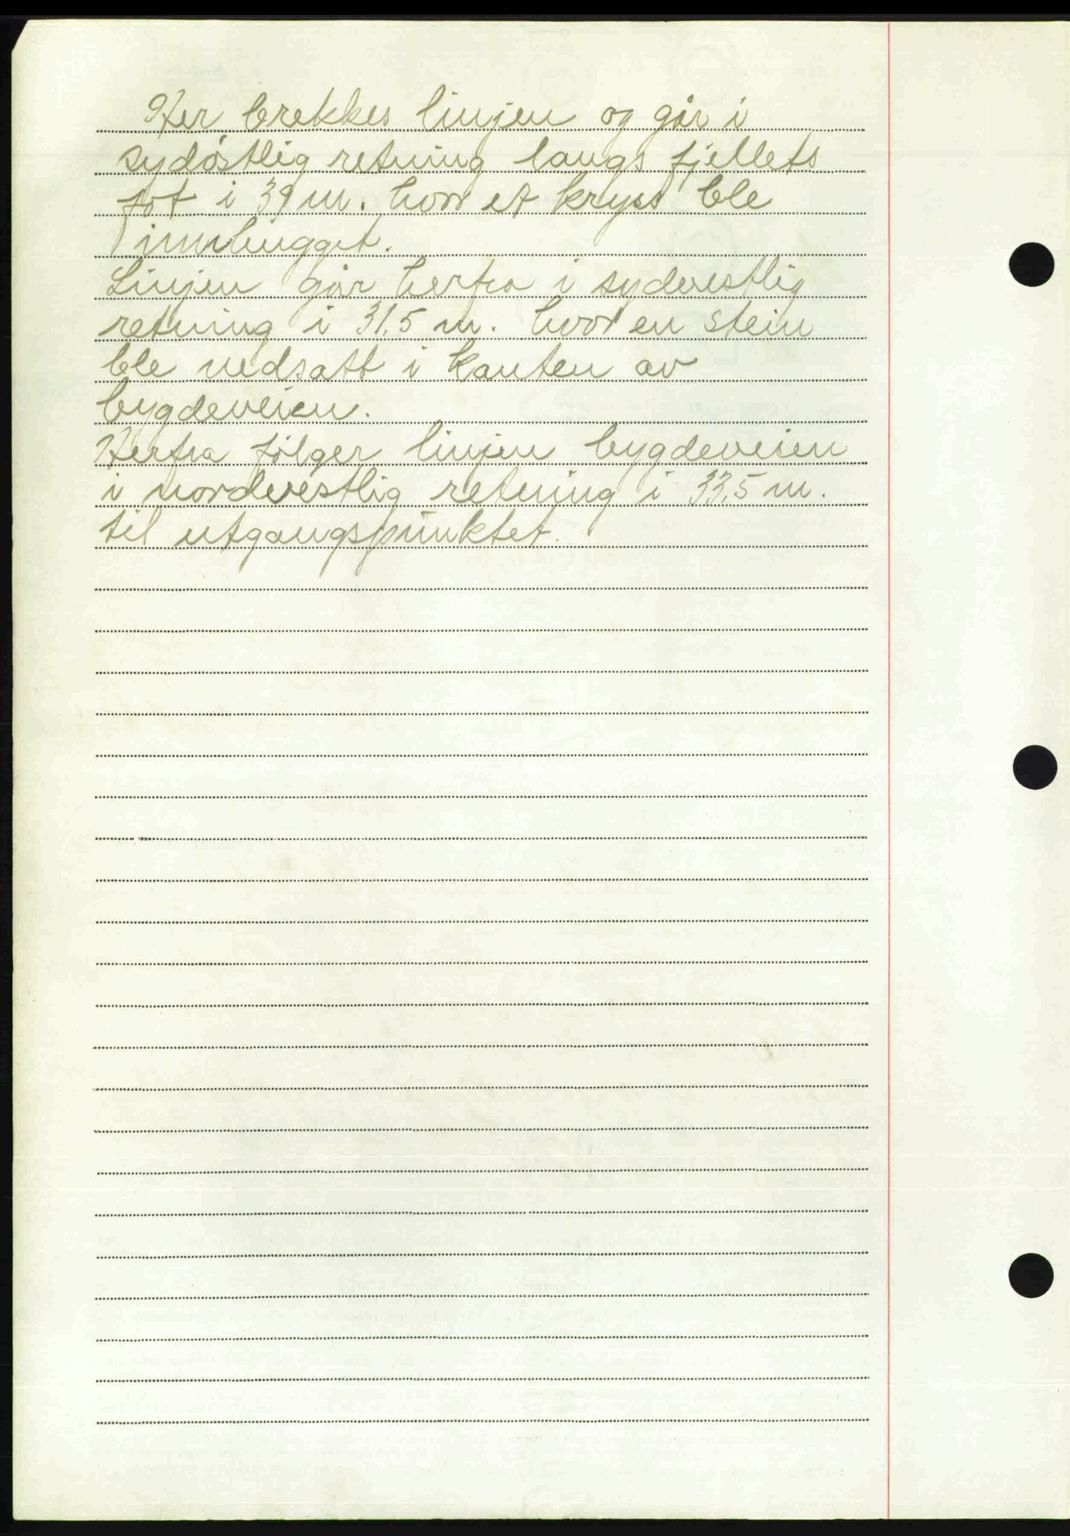 Her brekkes linjen og går i
sydøstlig retning langs fjellets
fot i 39 m. hvor et kryss ble
innhugget.
Linjen går herfra i sydvestlig
retning i 31,5 m. hvor en stein
ble nedsatt i kanten av
bygdeveien.
Herfra følger linjen bygdeveien
i nordvestlig retning i 33,5 m.
til utgangspunktet.